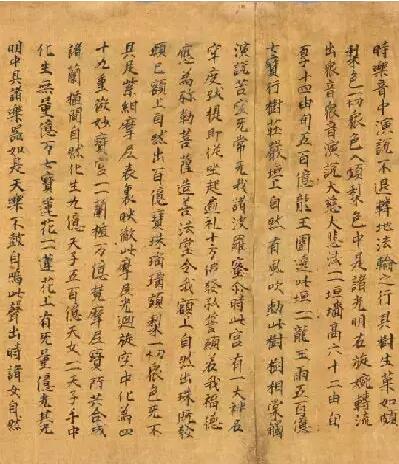 時樂音中演說不退轉地法輪之行其樹生菓如頗
梨色一切衆色入頗梨色中是諸光明右旋婉轉流
出衆音衆音演說大慈大悲法一一垣墻高六十二由旬
厚十四由旬五百億龍王圍遶此垣一一龍王雨五百億
七寶行樹莊嚴垣上自然有風吹動此樹樹相棠觸
演說苦空无常无我諸波羅蜜尒時此宮有一大神名
牢度跋提即從坐起遍礼十方佛發弘誓願若我福德
應為弥勒菩薩造善法堂令我額上自然出珠既發
願已額上自然出百億寶珠瑠璃頗梨一切衆色无不
具足紫紺摩尼表裏映徹此摩尼光迴旋空中化為四
十九重微妙寶宮一一蘭楯万億梵摩尼寶所共合成
諸蘭楯間自然化生九億天子五百億天女一一天子手中
化生无量億万七寶蓮花一一蓮花上有无量億光其光
明中具諸樂器如是天樂不鼓自鳴此聲出時諸女自然